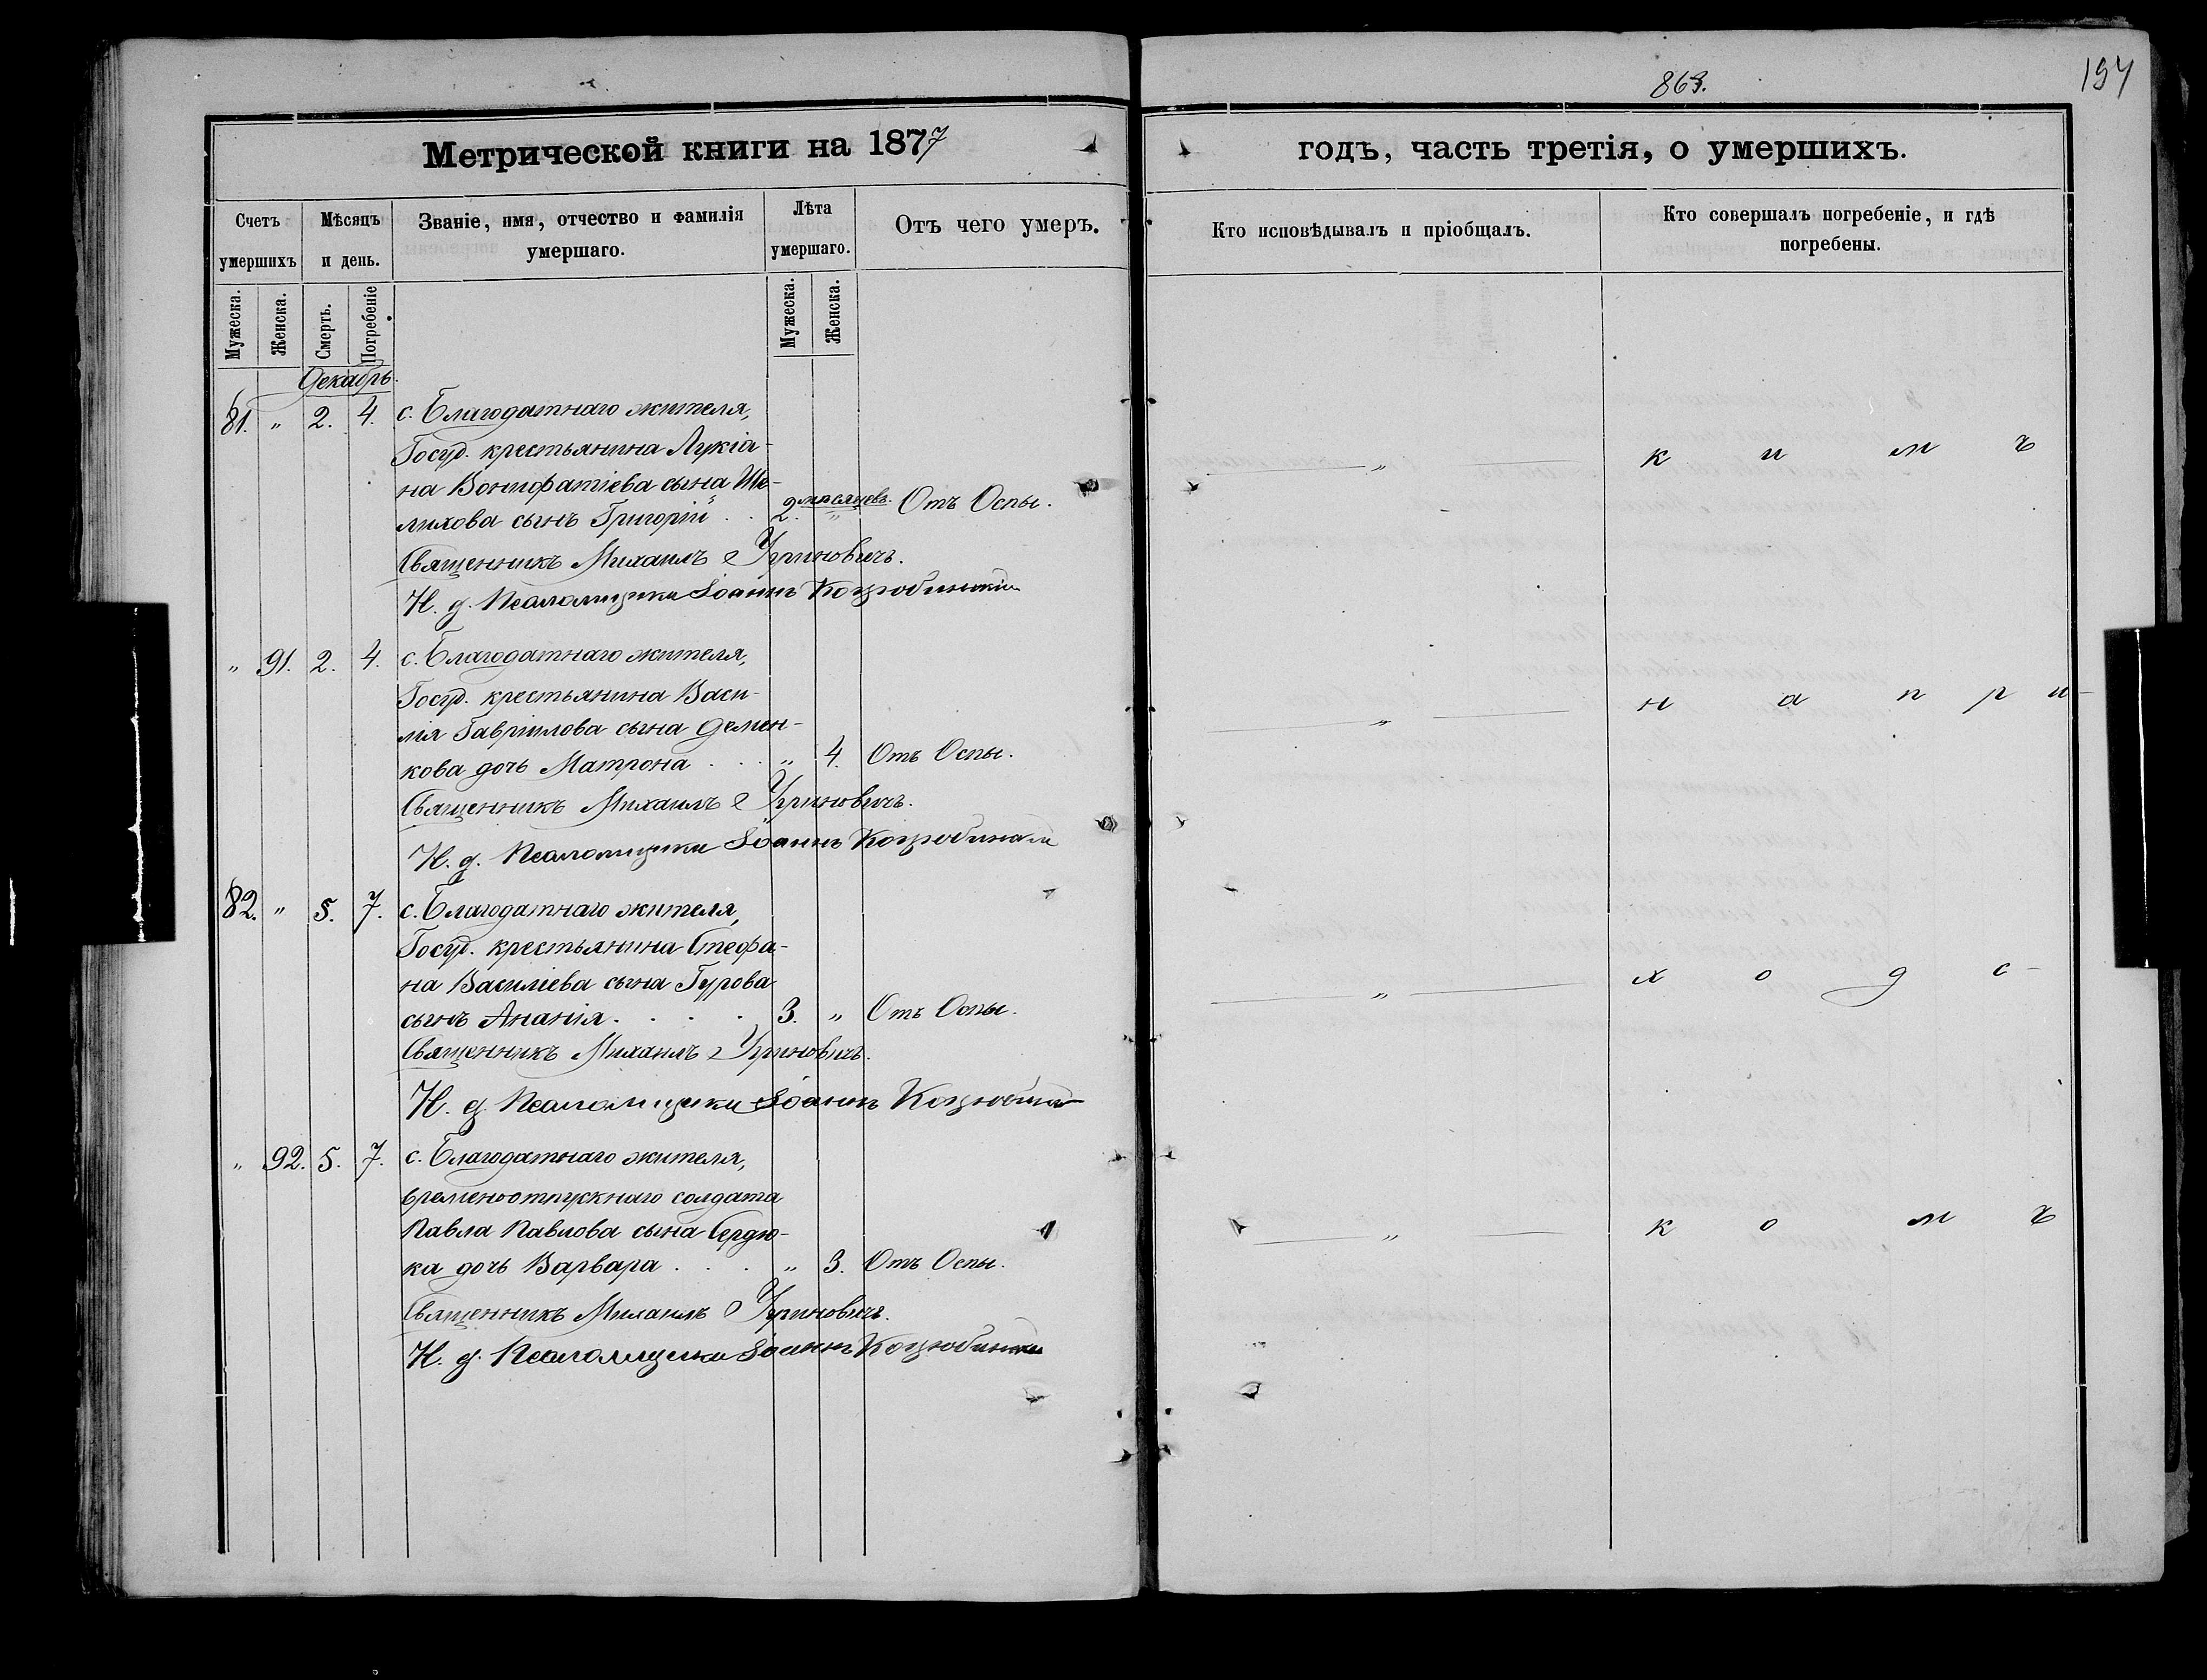 863.
197
Метрической книги на 1877
годъ, часть третія, о умершихъ.
Счетъ умершихъ
Мѣсяцъ и день.
Званіе, имя, отчество и фамилія умершаго.
Лѣта умершаго.
Отъ чего умеръ.
Кто исповѣдывалъ и пріобщалъ.
Кто совершалъ погребеніе, и гдѣ погребены.
Мужеска.
Женска.
Смерть.
Погребеніе
Мужеска.
Женска.
Декабрь.
81. " 2. 4. с. Благодатнаго жителя,
Госуд. крестьянина Лукіа-
на Вонифатіева сына Ше-
лихова сынъ Григорій . . 2. мѣсяцевъ. " Отъ Оспы.
" к и м ъ
Священникъ Михаилъ Угриновичъ.
И. д. Псаломщика Іоаннъ Коцюбинскій
" 91. 2. 4. с. Благодатнаго жителя,
Госуд. крестьянина Васи-
лія Гавріилова сына Демен-
кова дочь Матрона . . . " 4. Отъ Оспы.
" н а п р и-
Священникъ Михаилъ Угриновичъ.
И. д. Псаломщика Іоаннъ Коцюбинскій
82. " 5. 7. с. Благодатнаго жителя,
Госуд. крестьянина Стефа-
на Василіева сына Гурова
сынъ Ананія . . . . 3. " Отъ Оспы.
" х о д с-
Священникъ Михаилъ Угриновичъ.
И. д. Псаломщика Іоаннъ Коцюбинскій
" 92. 5. 7. с. Благодатнаго жителя,
временоотпускнаго солдата
Павла Павлова сына Сердю-
ка дочь Варвара . . . " 3. Отъ Оспы.
" к о м ъ
Священникъ Михаилъ Угриновичъ.
И. д. Псаломщика Іоаннъ Коцюбинскій